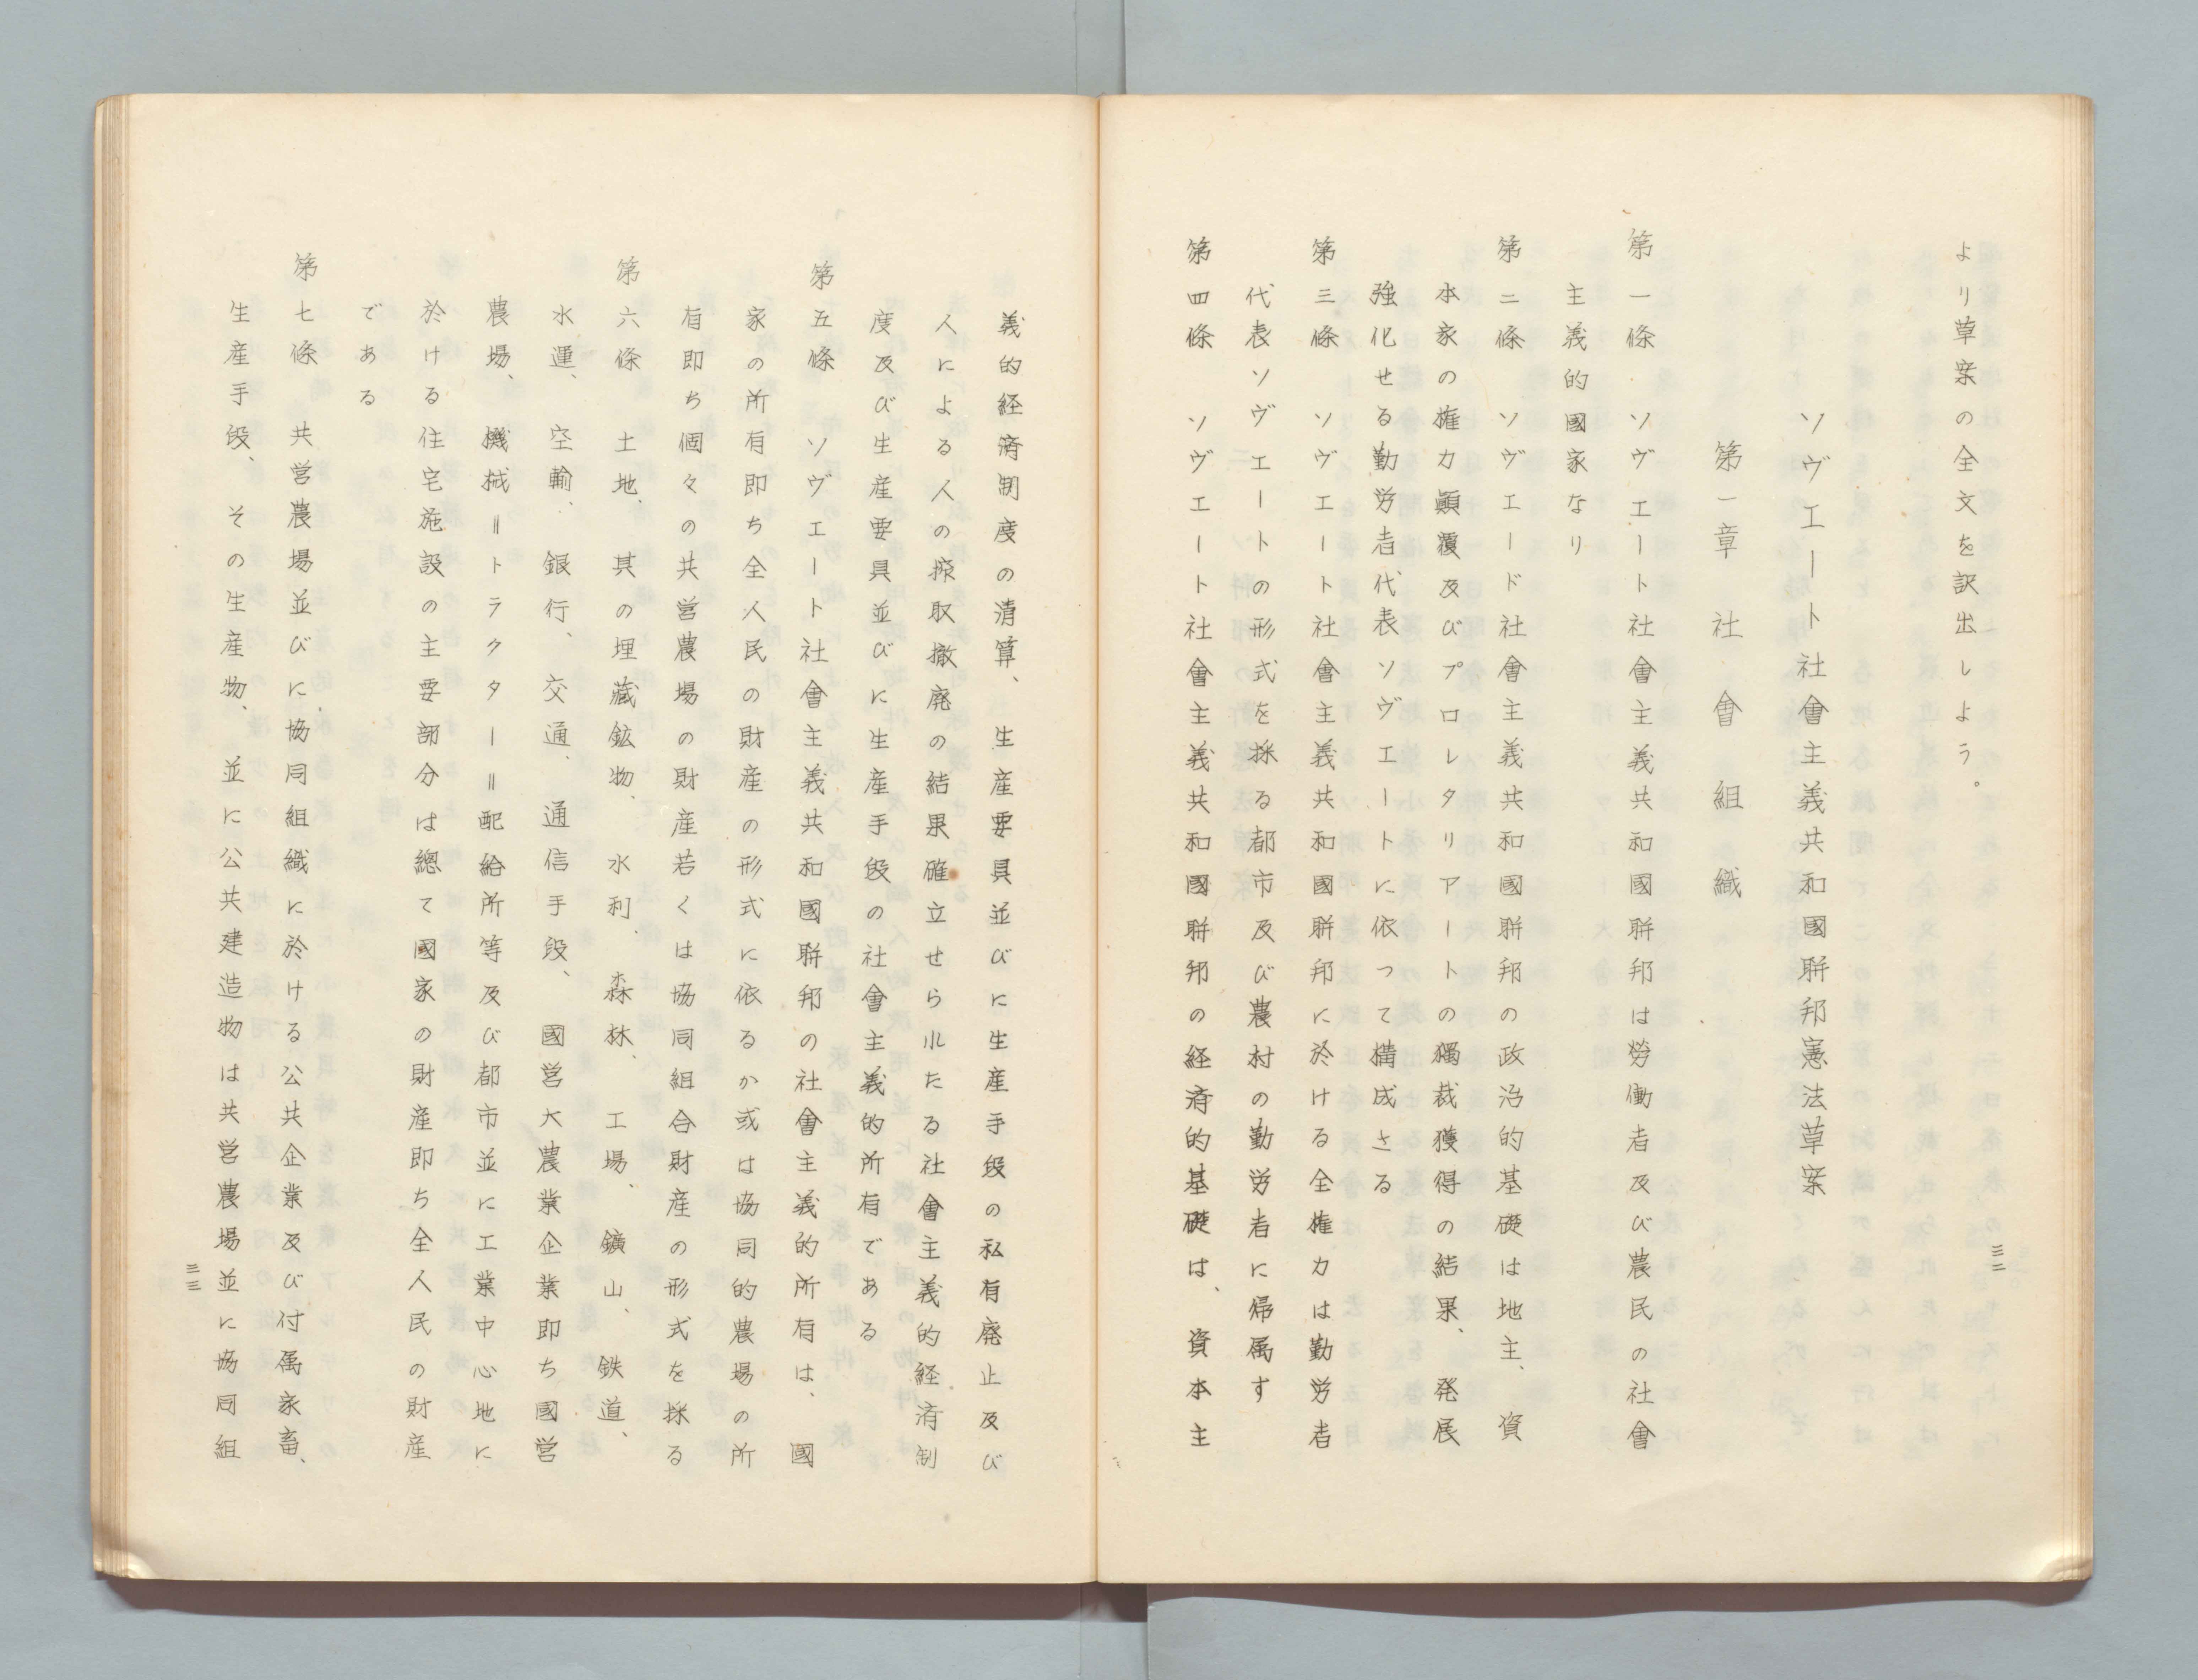 より草案の全文を訳出しよう。
ソヴエート社會主義共和國聨邦憲法草案
第一章　社會組織
第一條　ソヴエート社會主義共和國聨邦は勞働者及び農民の社會
主義的國家なり
第二條　ソヴエード社會主義共和國聨邦の政治的基礎は地主、資
本家の権力顚覆及びプロレタリアートの獨裁獲得の結果、発展
強化せる勤労者代表ソヴエートに依つて構成さる
第三條　ソヴエート社會主義共和國聨邦に於ける全権力は勤労者
代表ソヴエートの形式を採る都市及び農村の勤労者に帰属す
第四條　ソヴエート社會主義共和國聨邦の経済的基礎は、資本主
三二
義的経済制度の清算、生産要具並びに生産手段の私有廃止及び
人による人の搾取撤廃の結果確立せられたる社會主義的経済制
度及び生産要具並びに生産手段の社會主義的所有である
第五條　ソヴエート社會主義共和國聨邦の社會主義的所有は、國
家の所有即ち全人民の財産の形式に依るか或は協同的農場の所
有即ち個々の共営農場の財産若くは協同組合財産の形式を採る
第六條　土地、其の埋藏鉱物、水利、森林、工場、鑛山、鉄道、
水運、空輸、銀行、交通、通信手段、國営大農業企業即ち國営
農場、機械＝トラクター＝配給所等及び都市並に工業中心地に
於ける住宅施設の主要部分は總て國家の財産即ち全人民の財産
である
第七條　共営農場並びに協同組織に於ける公共企業及び付属家畜、
生産手段、その生産物、並に公共建造物は共営農場並に協同組
三三